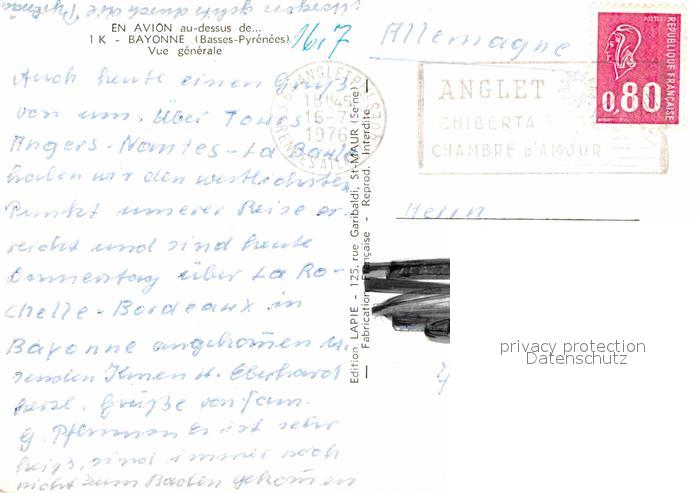 EN AVION au-dessus de...
1 K - BAYONNE (Basses-Pyrénées)
Vue générale
16.7
Allemagne
POSTES
RÉPUBLIQUE FRANÇAISE
0,80
ANGLET
18H45
16-7
1976
ANGLET
CHIBERTA
CHAMBRE D'AMOUR
Auch heute einen Gruß
von uns. Über Tours
Angers-Nantes-La Baule
haben wir den westlichsten
Punkt unserer Reise er-
reicht und sind heute
Donnerstag über La Ro-
chelle-Bordeaux in
Bayonne angekommen u.
senden Ihnen u. Eberhard
herzl. Grüße von Fam.
G. Es ist sehr
heiß, sind immer noch
nicht zum Baden gekommen
durch die
Edition LAPIE - 125, rue Garibaldi, St-MAUR (Seine)
Fabrication Française - Reprod. Interdite
Herrn
privacy protection
Datenschutz